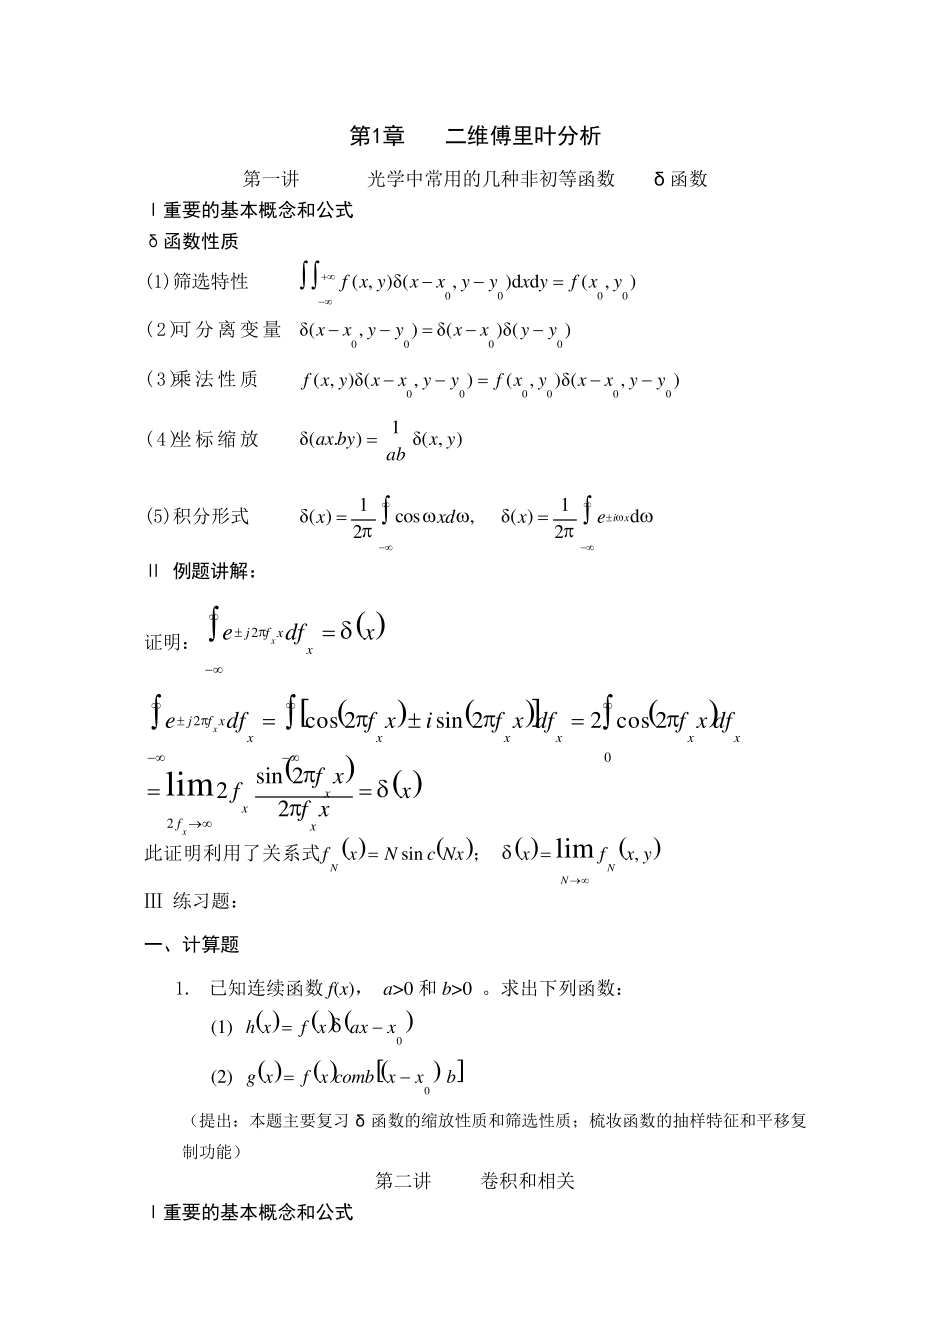 第1章 二维傅里叶分析
第一讲 光学中常用的几种非初等函数 δ 函数
Ⅰ重要的基本概念和公式
δ 函数性质
(1)筛选特性 ∫∫_{−∞}^{+∞} f(x, y)δ(x − x_0, y − y_0)dxdy = f(x_0, y_0)
(2)可分离变量 δ(x − x_0, y − y_0) = δ(x − x_0)δ(y − y_0)
(3)乘法性质 f(x, y)δ(x − x_0, y − y_0) = f(x_0, y_0)δ(x − x_0, y − y_0)
(4)坐标缩放 δ(ax.by) = 1/ab δ(x, y)
(5)积分形式 δ(x) = 1/2π ∫_{−∞}^{∞} cos ωxdω, δ(x) = 1/2π ∫_{−∞}^{∞} e^{±iωx}dω
Ⅱ 例题讲解:
证明: ∫_{−∞}^{∞} e^{±j2πf_x x}df_x = δ(x)
∫_{−∞}^{∞} e^{±j2πf_x x}df_x = ∫_{−∞}^{∞} [cos(2πf_x x) ± i sin(2πf_x x)]df_x = 2∫_0^{∞} cos(2πf_x x)df_x
= lim_{2f_x→∞} 2f_x sin(2πf_x x)/2πf_x x = δ(x)
此证明利用了关系式f_N(x) = N sin c(Nx); δ(x) = lim_{N→∞} f_N(x, y)
Ⅲ 练习题:
一、计算题
1. 已知连续函数 f(x), a>0 和 b>0 。求出下列函数:
(1) h(x) = f(x)δ(ax − x_0)
(2) g(x) = f(x)comb[(x − x_0) b]
(提出:本题主要复习 δ 函数的缩放性质和筛选性质;梳妆函数的抽样特征和平移复
制功能)
第二讲 卷积和相关
Ⅰ重要的基本概念和公式